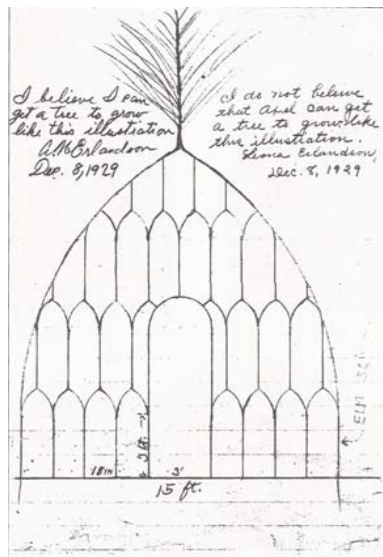 I believe I can
get a tree to grow
like this illustration
A.N. Erlandson
Dec. 8, 1929
I do not believe
that Axel can get
a tree to grow like
this illustration.
Leona Erlandson,
Dec. 8, 1929
3 ft.
18 in
3'
15 ft.
ELM